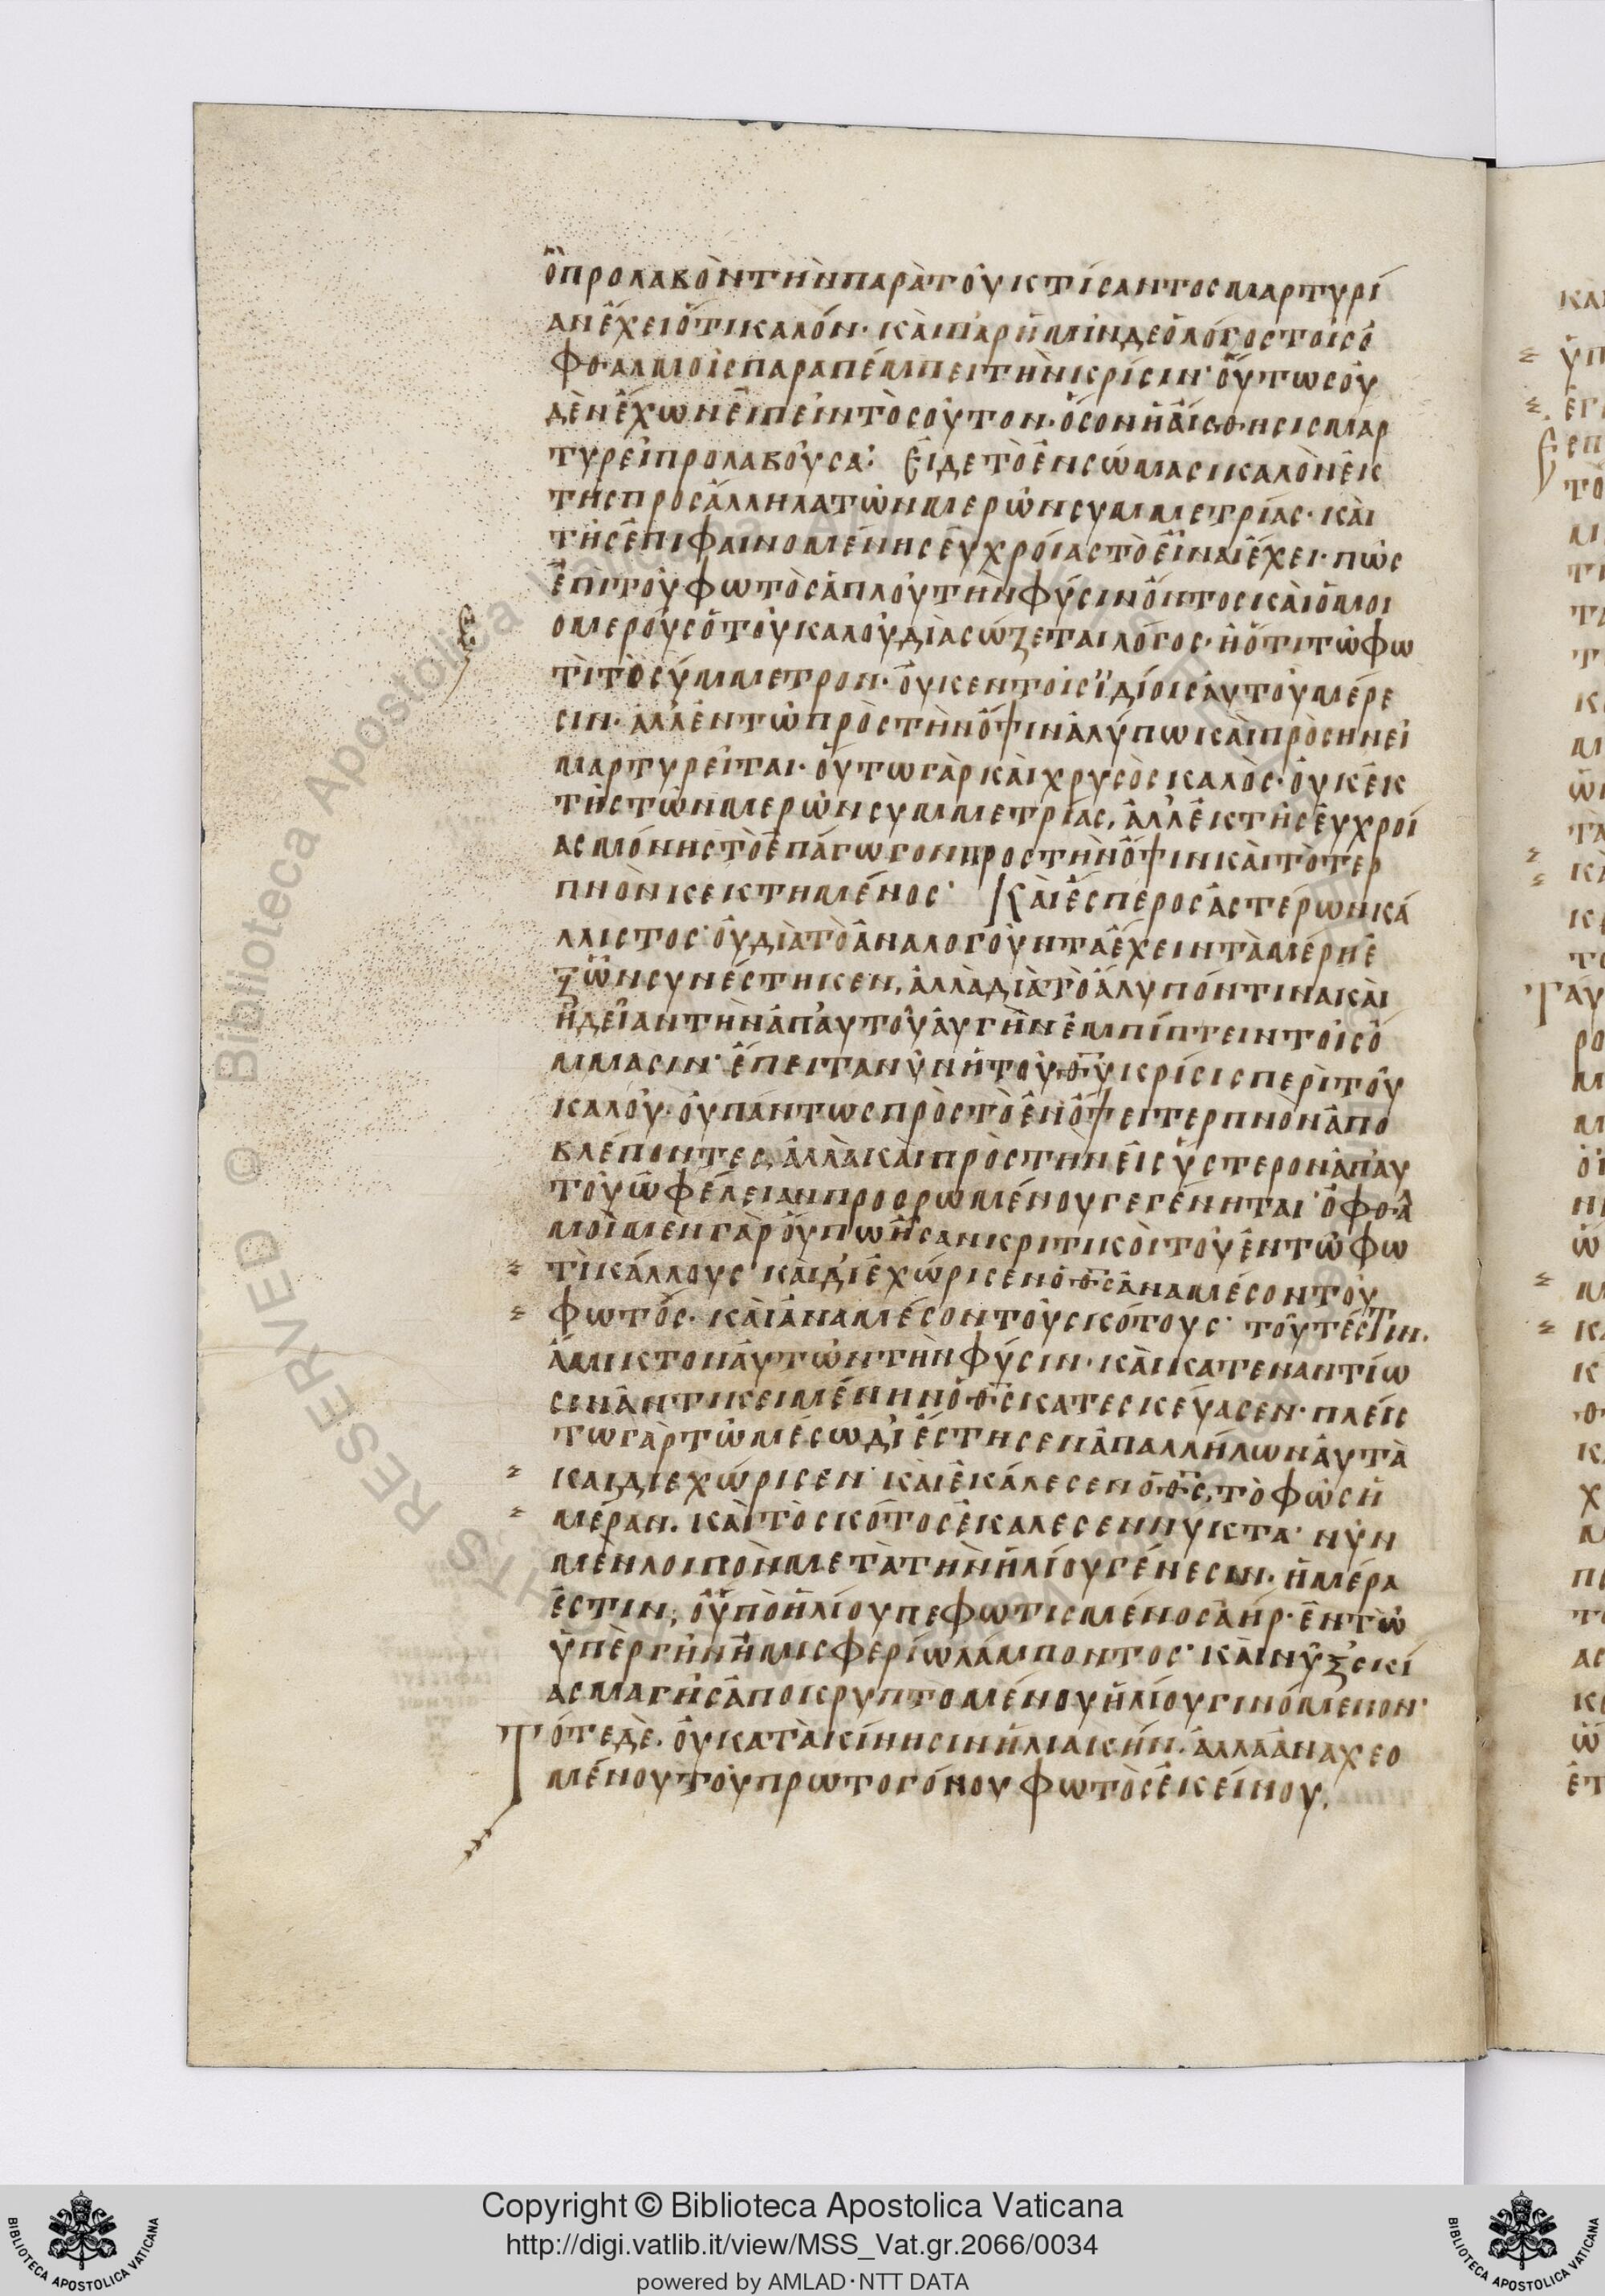 ὃ προλαβὸν τὴν παρὰ τοῦ κτίσαντος μαρτυρί
αν ἔχει ὅτι καλόν· καὶ παρ ἡμῖν δε ὁ λόγος τοῖς ὀ
φθαλμοῖς παραπέμπει τὴν κρίσιν· οὕτως οὐ
δὲν ἔχων εἰπεῖν τὸσοῦτον· ὅσον ἡ αἴσθησις μαρ
τυρεῖ προλαβοῦσα: Εἰ δε τὸ ἐν σώμασι καλὸν ἐκ
τῆς προς ἄλληλα τῶν μερῶν συμμετρίας· καὶ
τῆς ἐπιφαινομένης εὐχροίας τὸ εἶναι ἔχει· πῶς
ἐπὶ τοῦ φωτὸς ἁπλοῦ τὴν φύσιν ὄντος καὶ ὁμοι
ομεροῦς ὁ τοῦ καλοῦ διασώζεται λόγος· ἢ ὅτι τῶ φω
τὶ τὸ σύμμετρον· οὐκ εν τοῖς ϊδίοις αυτοῦ μέρε
σιν· ἀλλ ἐν τῶ πρὸς τὴν ὄψιν ἀλύπω καὶ πρὸσηνεῖ
μαρτυρεῖται· οὕτω γὰρ καὶ χρυσὸς καλὸς· οὐκ ἐκ
τῆς τῶν μερῶν συμμετρίας, ἀλλ ἐκ τῆς ἐυχροί
ας μόνης τὸ ἐπάγωγον προς τὴν ὄψιν καὶ τὸ τερ
πνὸν κεκτημένος· Καὶ ἕσπερος ἀστέρων κά
λλιστος· οὐ διὰ τὸ ἀναλογοῦντα ἔχειν τὰ μέρη ἐ
ξ ὧν συνέστηκεν, ἀλλὰ διὰ τὸ ἄλυπόν τινα καὶ
ἡδεῖαν τὴν ἀπ αυτοῦ ἀυγὴν ἐμπίπτειν τοῖς ὄ
μμασιν· ἔπειτα νῦν ἡ τοῦ θυ κρίσις περὶ τοῦ
καλοῦ· οὐ πάντως πρὸς τὸ ἐν ὄψει τερπνὸν ἀπο
βλέποντες, ἀλλὰ καὶ πρὸς τὴν εἰς ὕστερον ἀπ αυ
τοῦ ὠφέλειαν προορωμένου γεγένηται· ὀφθαλ
μοὶ μὲν γὰρ οὔπω ἦσαν κριτικοὶ τοῦ ἐν τῶ φω
τὶ κάλλους· καὶ διἐχώρισεν ὁ θς ἀναμέσον τοῦ
φωτός· καὶ ἀναμέσον τοῦ σκότους· τοῦτέστιν.
ἄμικτον ἀυτῶν τὴν φύσιν· καὶ κατεναντίω
σιν ἀντικειμένην ὁ θς κατεσκέυασεν· πλείς
τω γὰρ τῶ μέσω διἔστησεν ἀπ αλλήλων ἀυτὰ
και διεχώρισεν· καὶ ἐκάλεσεν ὁ θς, τὸ φῶς ἡ
μέραν. καὶ τὸ σκότος ἐκαλεσεν νυκτα· νῦν
μὲν λοιπὸν μετὰ τὴν ἡλίου γένεσιν· ἡμέρα
ἐστιν, ὁ ὑπὸ ἡλίου πεφωτισμένος ἀὴρ· ἐν τῶ
ὑπὲρ γῆν ἡμισφερίω λάμποντος· καὶ νὺξ σκί
ασμα γῆς ἀποκρυπτομένου ἡλίου γινόμενον·
Τότε δὲ. οὐ κατὰ κίνησιν ἡλιακὴν. ἀλλα ἀναχεο
μένου τοῦ πρωτογόνου φωτὸς ἐκείνου,
Copyright © Biblioteca Apostolica Vaticana
http://digi.vatlib.it/view/MSS_Vat.gr.2066/0034
powered by AMLAD·NTT DATA